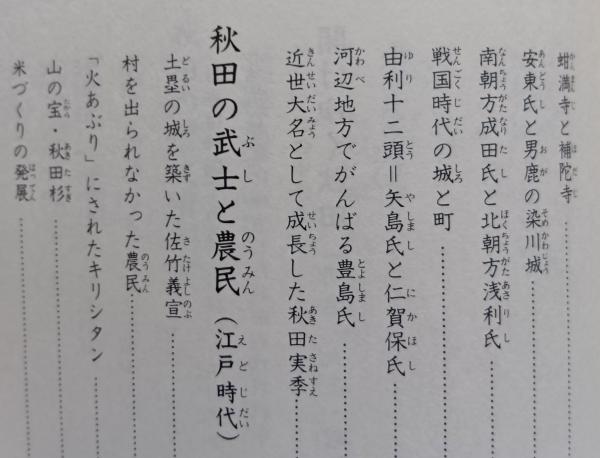 蚶満寺と補陀寺…………
安東氏と男鹿の染川城…………
南朝方成田氏と北朝方浅利氏…………
戦国時代の城と町…………
由利十二頭＝矢島氏と仁賀保氏…………
河辺地方でがんばる豊島氏…………
近世大名として成長した秋田実季…………
秋田の武士と農民（江戸時代）
土塁の城を築いた佐竹義宣…………
村を出られなかった農民…………
「火あぶり」にされたキリシタン…………
山の宝・秋田杉…………
米づくりの発展…………